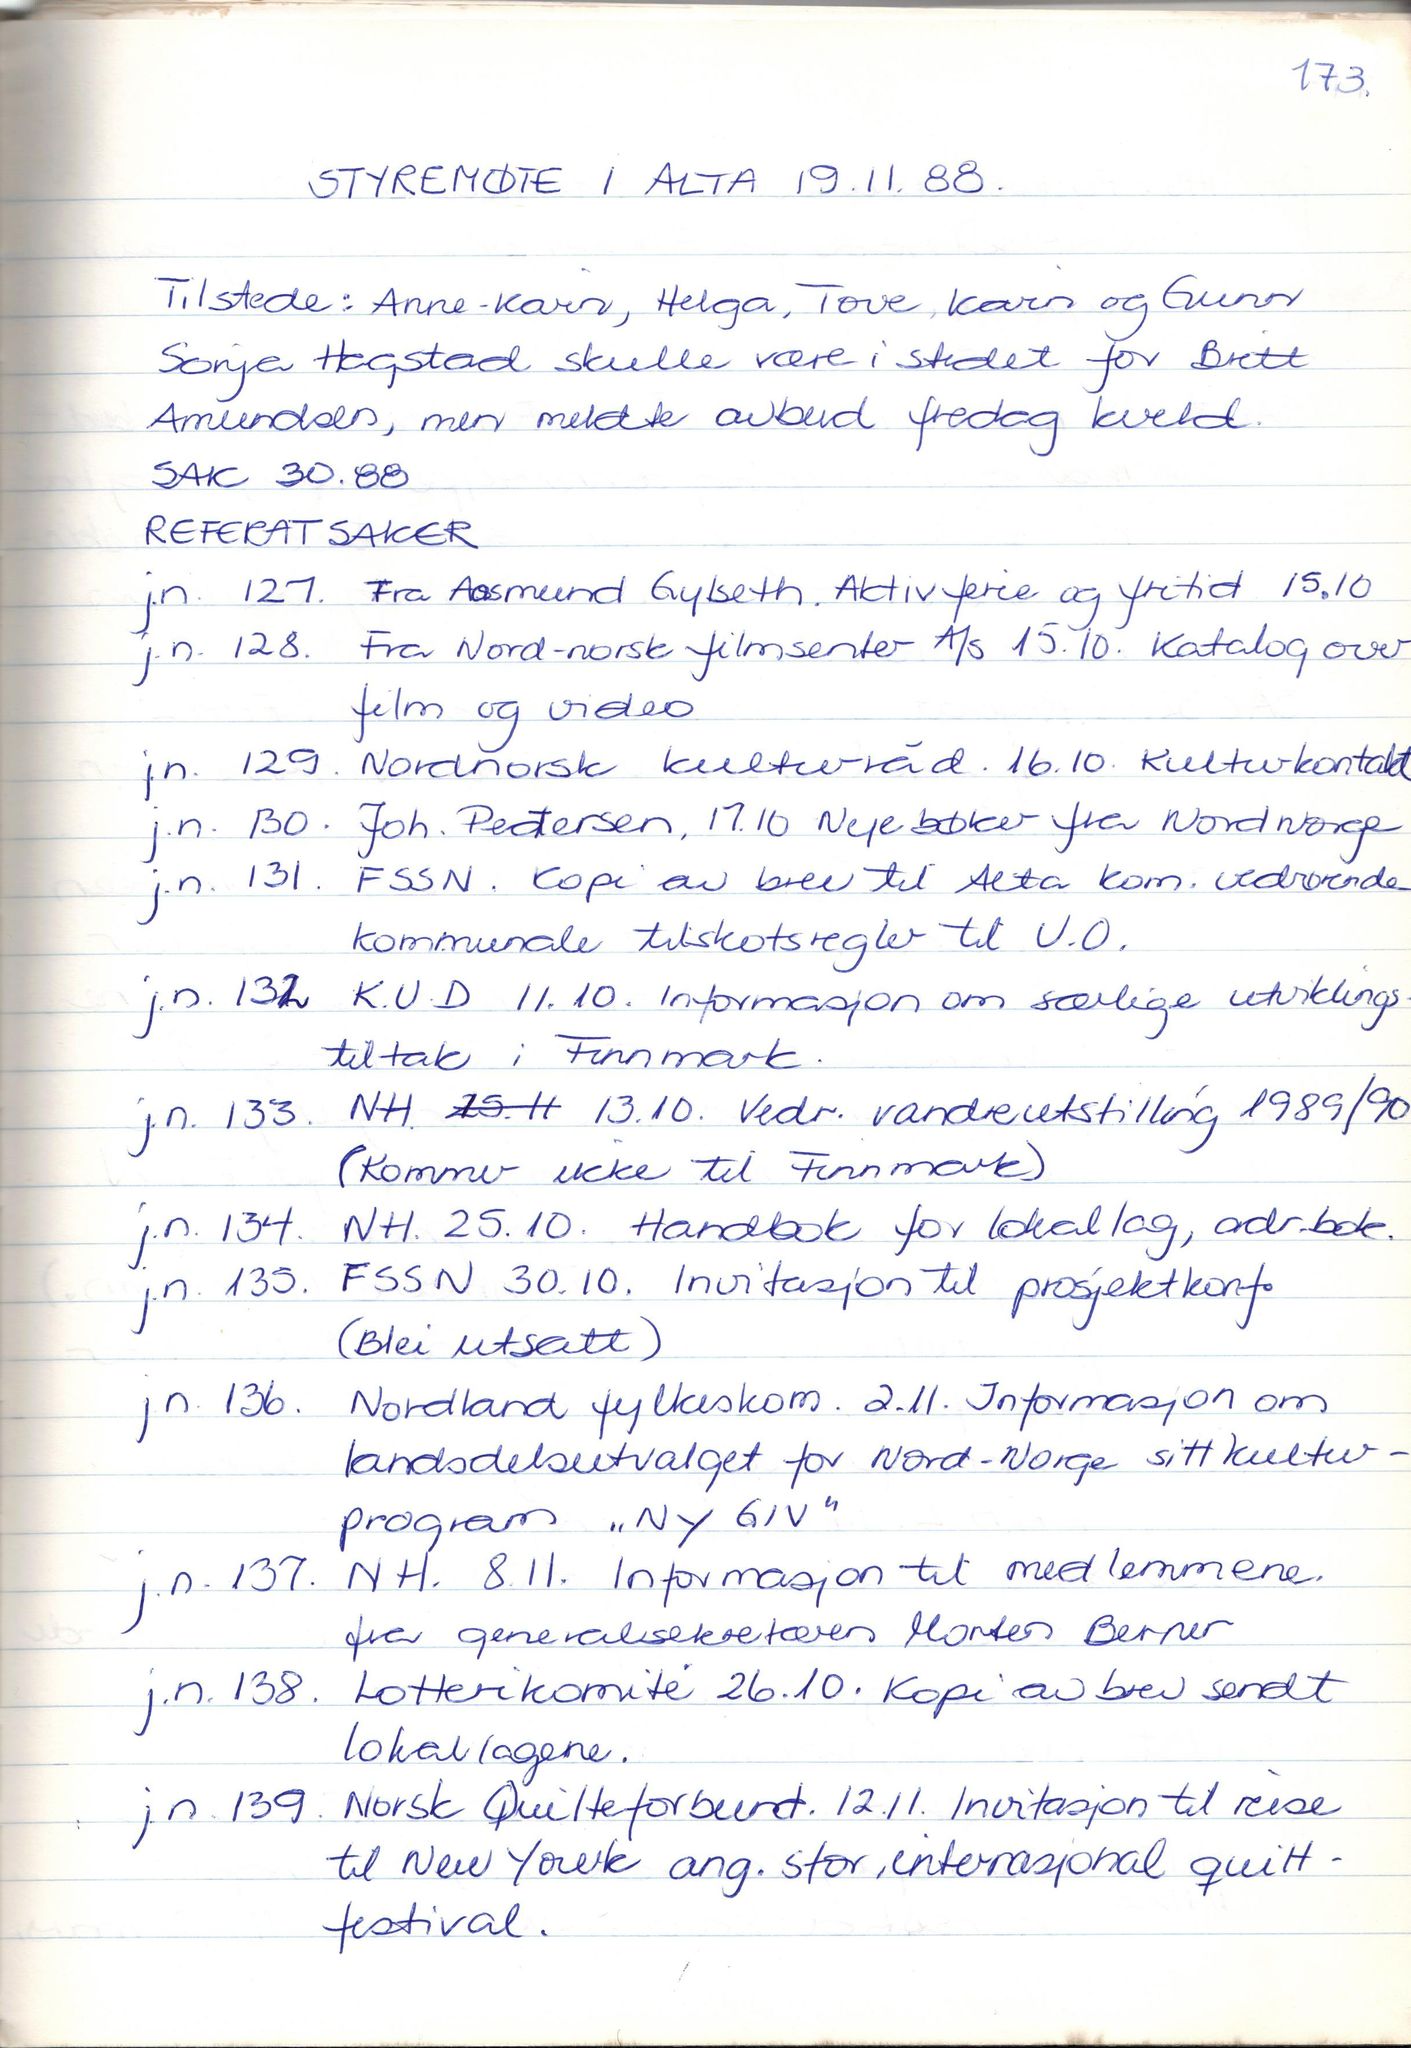 173.
STYREMØTE I ALTA 19.11.88.
Tilstede: Anne-Karin, Helga, Tove, Karin og Gunn
Sonja Hagstad skulle være i stedet for Britt
Amundsen, men meldte avbud fredag kveld.
SAK 30.88
REFERATSAKER
j.n. 127. Fra Aasmund Gylseth. Aktiv ferie og fritid 15.10
j.n. 128. Fra Nord-norsk filmsenter A/s 15.10. Katalog over
film og video
j.n. 129. Nordnorsk kulturråd. 16.10. Kulturkontakt
j.n. 130. Joh. Pedersen, 17.10 Nye bøker fra Nordnorge
j.n. 131. FSSN. Kopi av brev til Alta kom. vedrørende
kommunale tilskotsregler til V.O.
j.n. 132 K.U.D 11.10. Informasjon om særlige utviklings-
tiltak i Finnmark.
j.n. 133. NH. 13.10. Vedr. vandreutstilling 1989/90
(Kommer ikke til Finnmark)
j.n. 134. NH. 25.10. Handbok for lokallag, adr.bok.
j.n. 135. FSSN 30.10. Invitasjon til prosjektkonf.
(Blei utsatt)
j.n. 136. Nordland fylkeskom. 2.11. Informasjon om
landsdelsutvalget for Nord-Norge sitt kultur-
program „NY GIV"
j.n. 137. NH. 8.11. Informasjon til medlemmene.
fra generalsekretæren Morten Berner
j.n. 138. Lotterikomité 26.10. Kopi av brev sendt
lokallagene.
j.n. 139. Norsk Quilteforbund. 12.11. Invitasjon til reise
til New Yourk ang. stor, internasjonal quilt-
festival.